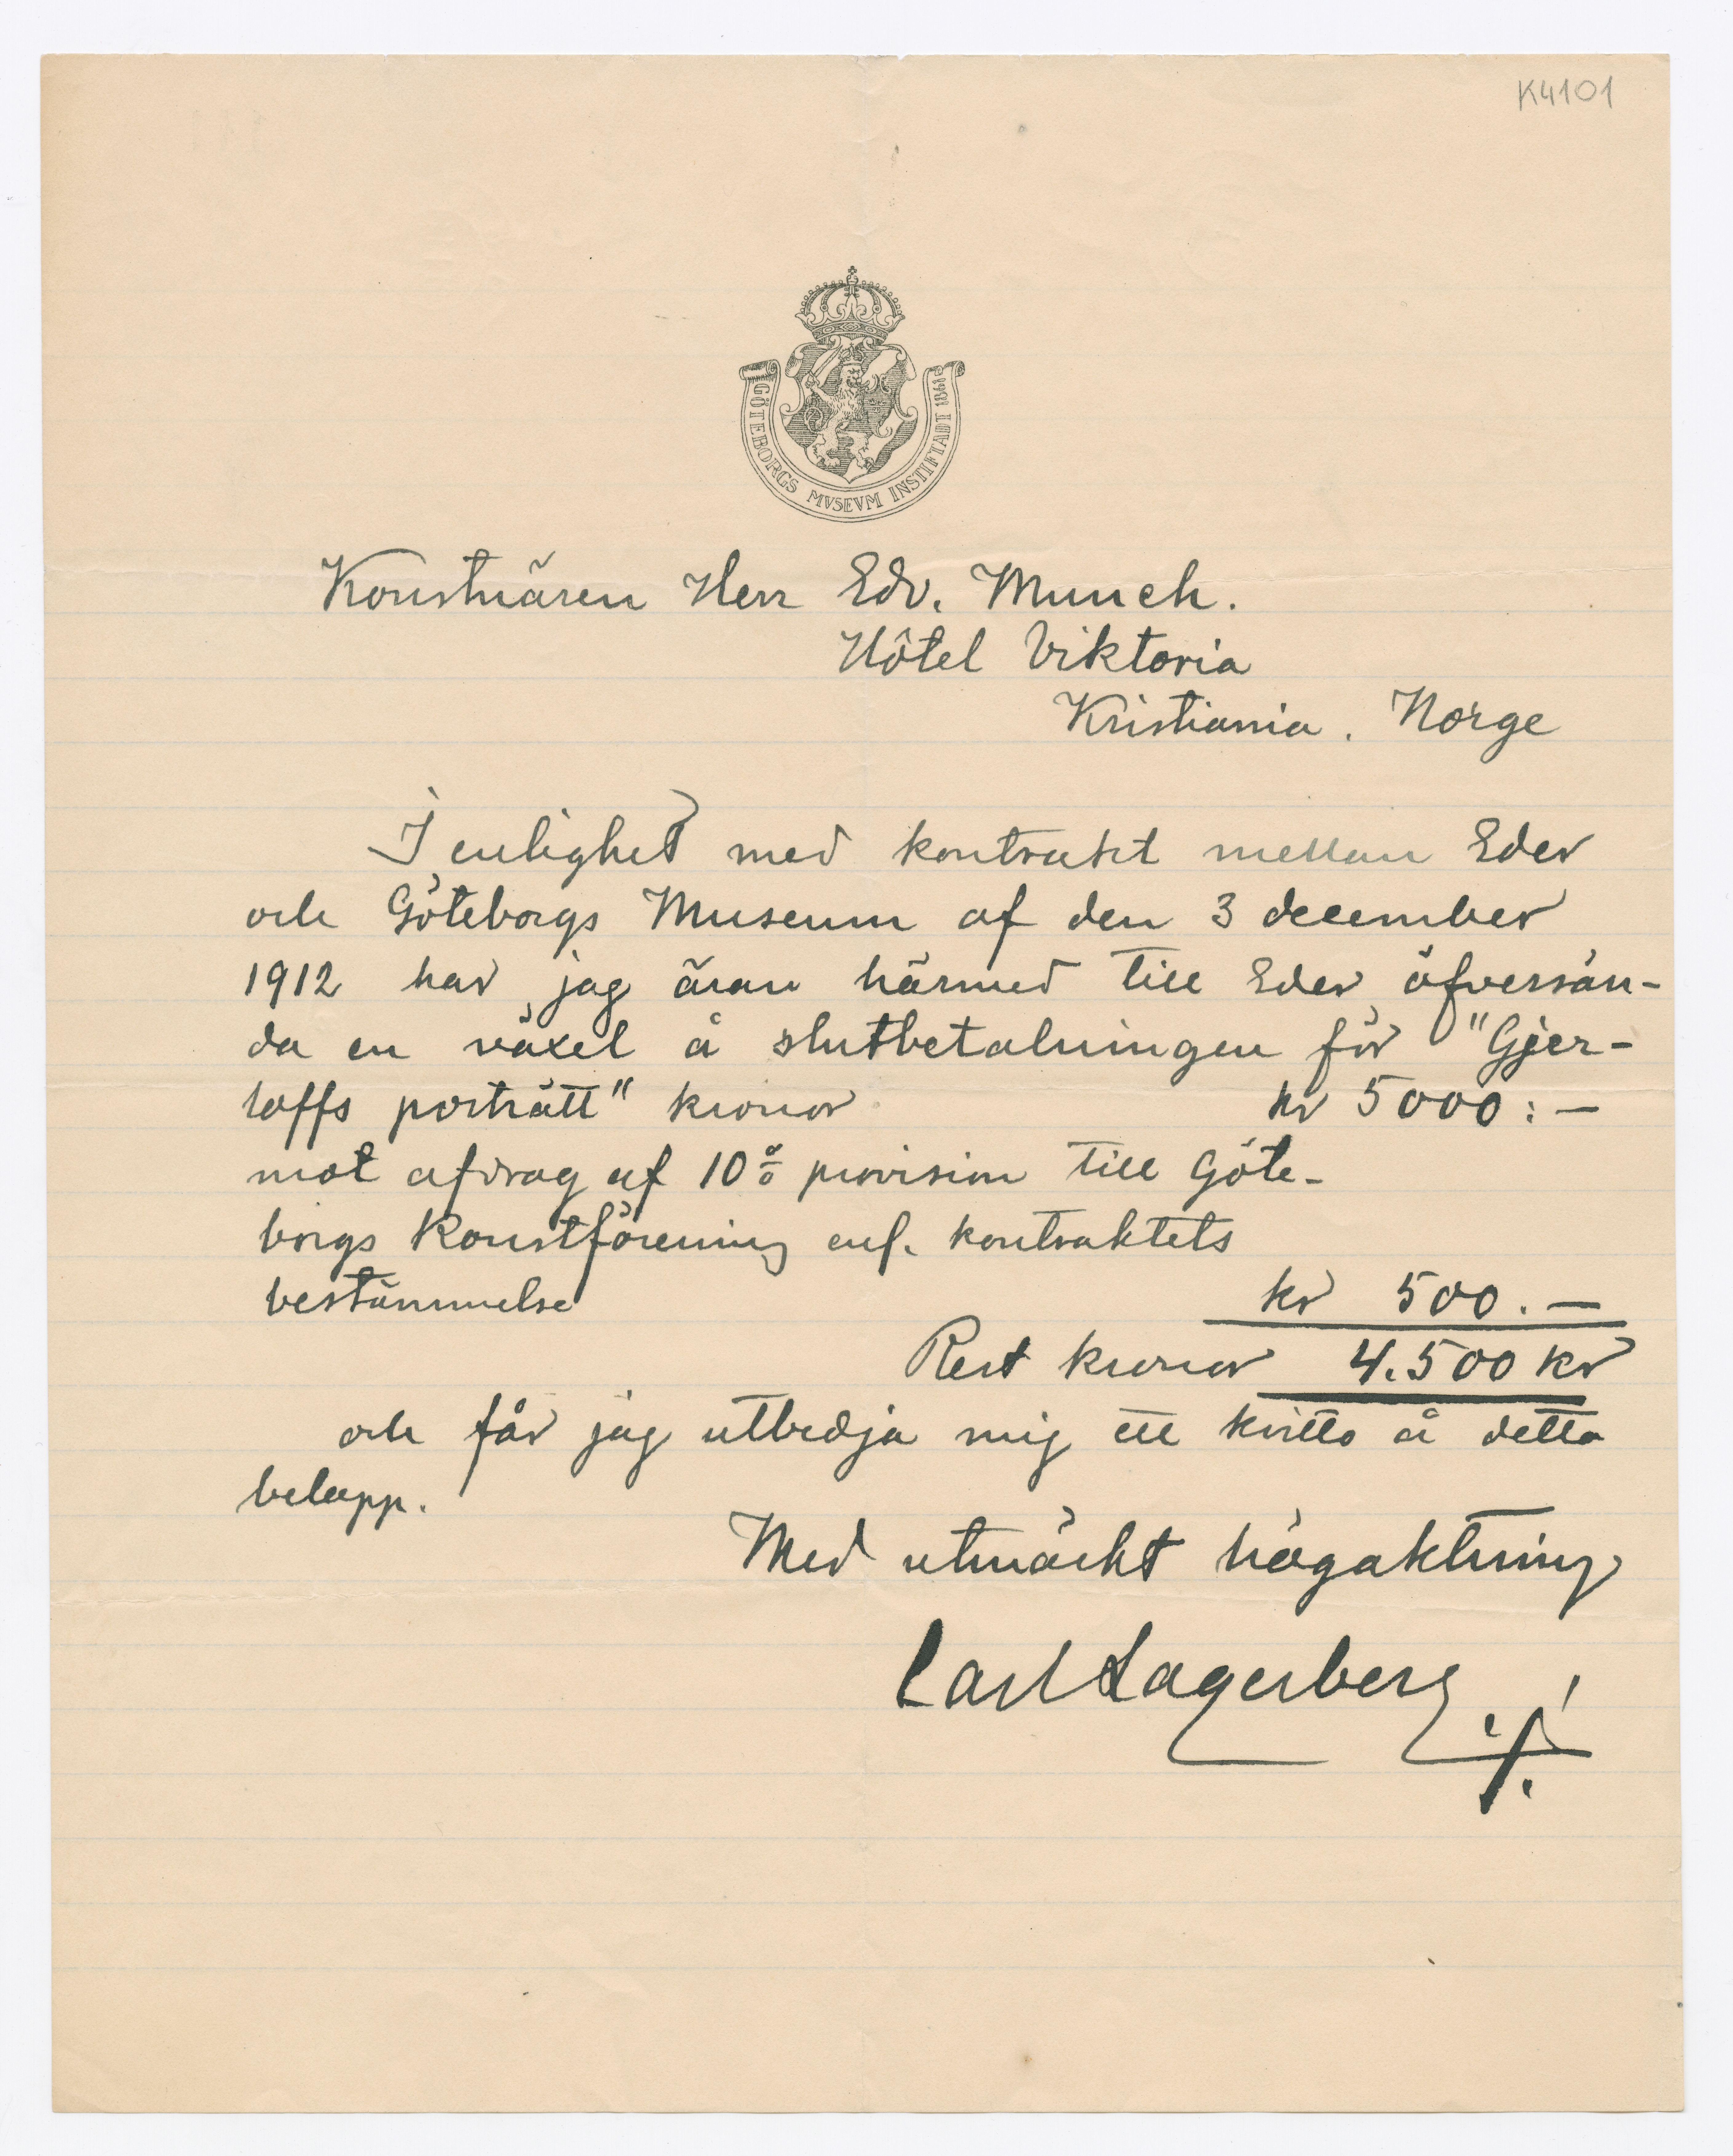 K4101
GÖTEBORGS MVSEVM INSTIFTADT 1861
Konstnären Herr Edv. Munch.
Hôtel Viktoria
Kristiania. Norge
I enlighet med kontrakt mellan Eder
och Göteborgs Museum af den 3 december
1912 har jag äran härmed till Eder öfversän-
da en växel å slutbetalningen för "Gjer-
loffs porträtt" kronor kr 5000:–
mot afdrag af 10% provision till Göte-
borgs Konstförening enl. kontraktets
bestämmelse kr 500.–
Rest kronor 4.500 kr
och får jag utbedja mig ett kvitto å detta
belopp.
Med utmärkt högaktning
Carl Lagerberg